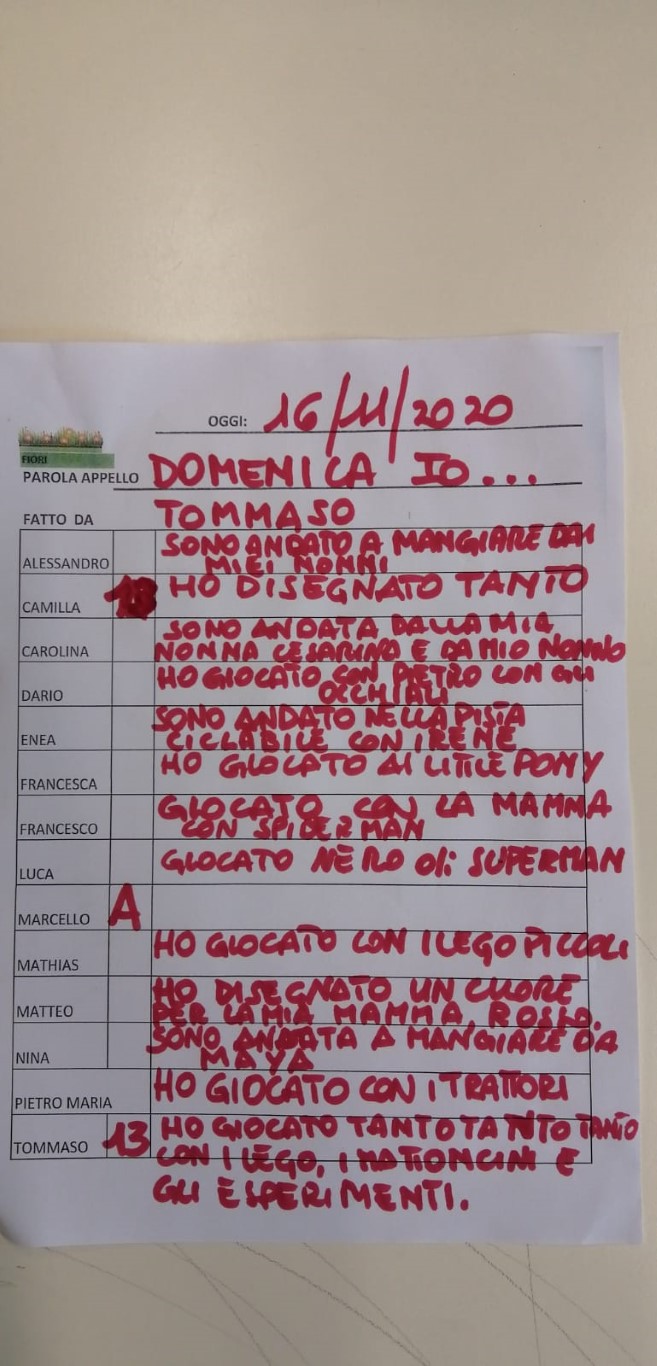 OGGI: 16/11/2020
FIORI
PAROLA APPELLO DOMENICA IO...
FATTO DA TOMMASO
ALESSANDRO SONO ANDATO A MANGIARE DAI
MIEI NONNI
CAMILLA HO DISEGNATO TANTO
CAROLINA SONO ANDATA DALLA MIA
NONNA CESARINA E DA MIO NONNO
DARIO HO GIOCATO CON PIETRO CON GLI
OCCHIALI
ENEA SONO ANDATO NELLA PISTA
CICLABILE CON IRENE
FRANCESCA HO GIOCATO AI LITTLE PONY
FRANCESCO GIOCATO CON LA MAMMA
CON SPIDERMAN
LUCA GIOCATO NERO di SUPERMAN
MARCELLO A
MATHIAS HO GIOCATO CON I LEGO PICCOLI
MATTEO HO DISEGNATO UN CUORE
PER LA MIA MAMMA. ROSSO.
NINA SONO ANDATA A MANGIARE DA
MAYA
PIETRO MARIA HO GIOCATO CON I TRATTORI
TOMMASO 13 HO GIOCATO TANTO TANTO TANTO
CON I LEGO, I MATTONCINI E
GLI ESPERIMENTI.